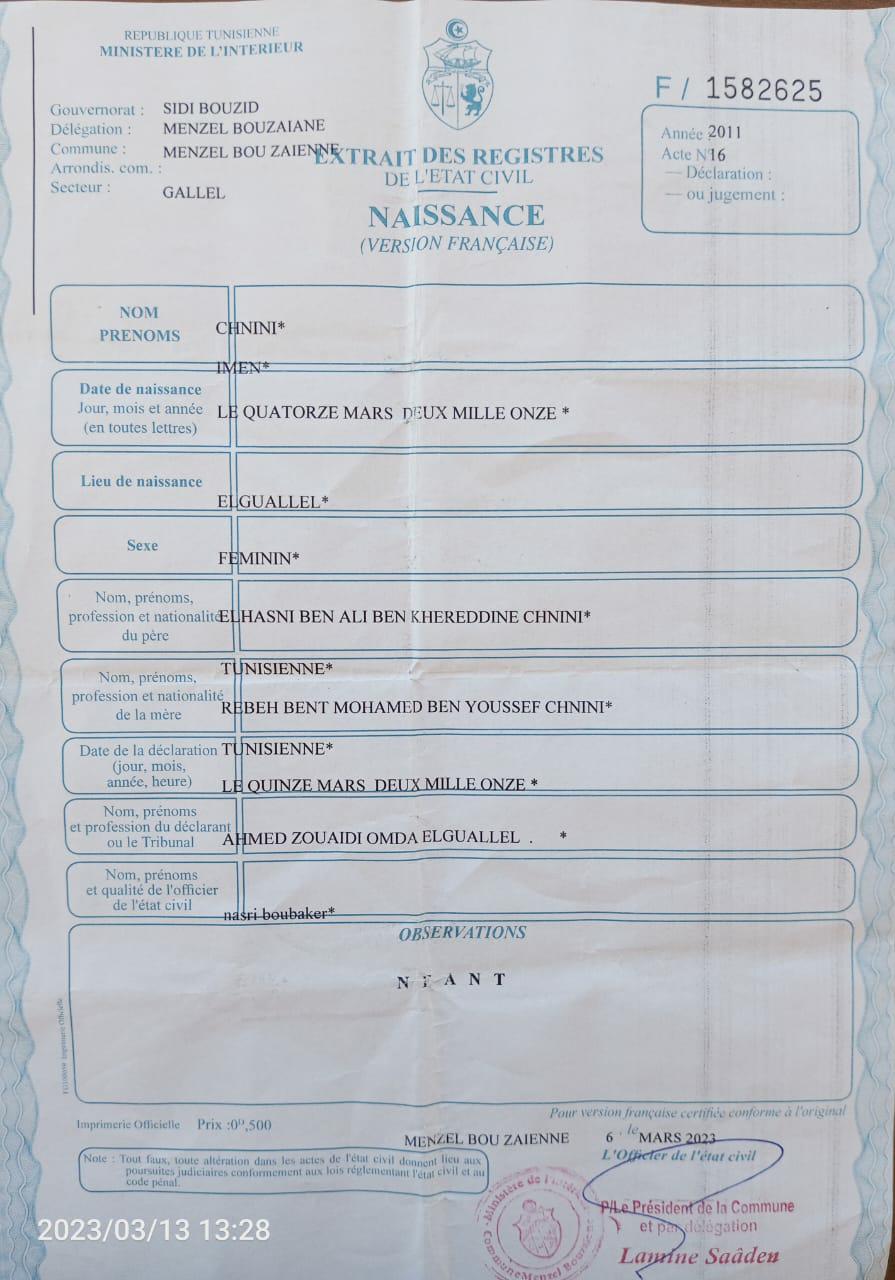 REPUBLIQUE TUNISIENNE
MINISTERE DE L'INTERIEUR
Gouvernorat : SIDI BOUZID
Délégation : MENZEL BOUZAIANE
Commune : MENZEL BOU ZAIENNE
Arrondis. com. :
Secteur : GALLEL
EXTRAIT DES REGISTRES
DE L'ETAT CIVIL
NAISSANCE
(VERSION FRANÇAISE)
F / 1582625
Année 2011
Acte N°16
— Déclaration :
— ou jugement :
NOM
PRENOMS
CHNINI*
IMEN*
Date de naissance
Jour, mois et année
(en toutes lettres)
LE QUATORZE MARS DEUX MILLE ONZE *
Lieu de naissance
ELGUALLEL*
Sexe
FEMININ*
Nom, prénoms,
profession et nationalité
du père
ELHASNI BEN ALI BEN KHEREDDINE CHNINI*
TUNISIENNE*
Nom, prénoms,
profession et nationalité
de la mère
REBEH BENT MOHAMED BEN YOUSSEF CHNINI*
TUNISIENNE*
Date de la déclaration
(jour, mois,
année, heure)
LE QUINZE MARS DEUX MILLE ONZE *
Nom, prénoms
et profession du déclarant
ou le Tribunal
AHMED ZOUAIDI OMDA ELGUALLEL . *
Nom, prénoms
et qualité de l'officier
de l'état civil
nasri boubaker*
OBSERVATIONS
N E A N T
Imprimerie Officielle
Imprimerie Officielle Prix :0ᴰ,500
Pour version française certifiée conforme à l'original
MENZEL BOU ZAIENNE 6 le MARS 2023
L'Officier de l'état civil
Note : Tout faux, toute altération dans les actes de l'état civil donnent lieu aux
poursuites judiciaires conformement aux lois réglementant l'état civil et au
code pénal.
Ministère de l'Intérieur
Commune Menzel Bouzaiene
P/Le Président de la Commune
et par délégation
Lamine Saâden
2023/03/13 13:28